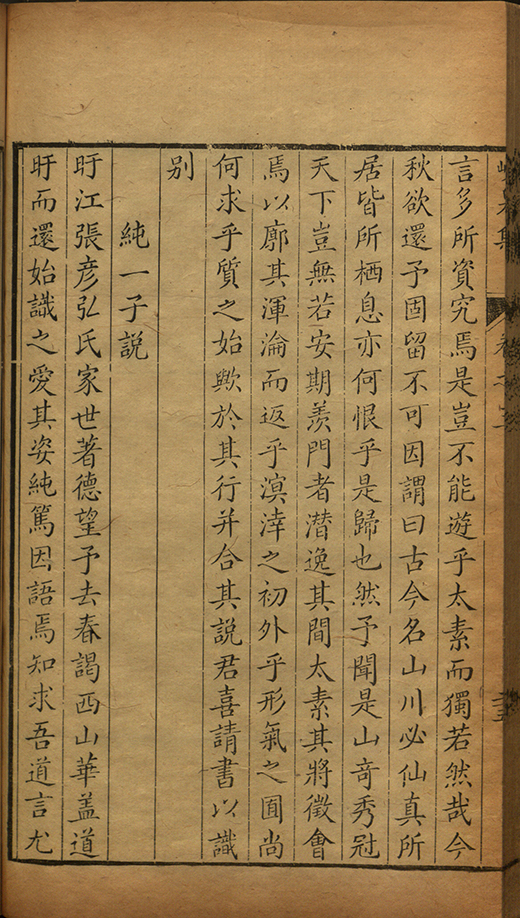 言多所資究焉是豈不能遊乎太素而獨若然哉今
秋欲還予固留不可因謂曰古今名山川必仙真所
居皆所栖息亦何恨乎是歸也然予聞是山竒秀冠
天下豈無若安期羨門者潜逸其間太素其將徵會
焉以廓其渾淪而返乎溟涬之初外乎形氣之囿尚
何求乎質之始歟於其行并合其說君喜請書以識
别
純一子説
盱江張彦弘氏家世著德望予去春謁西山華盖道
盱而還始識之愛其姿純篤因語焉知求吾道言尤